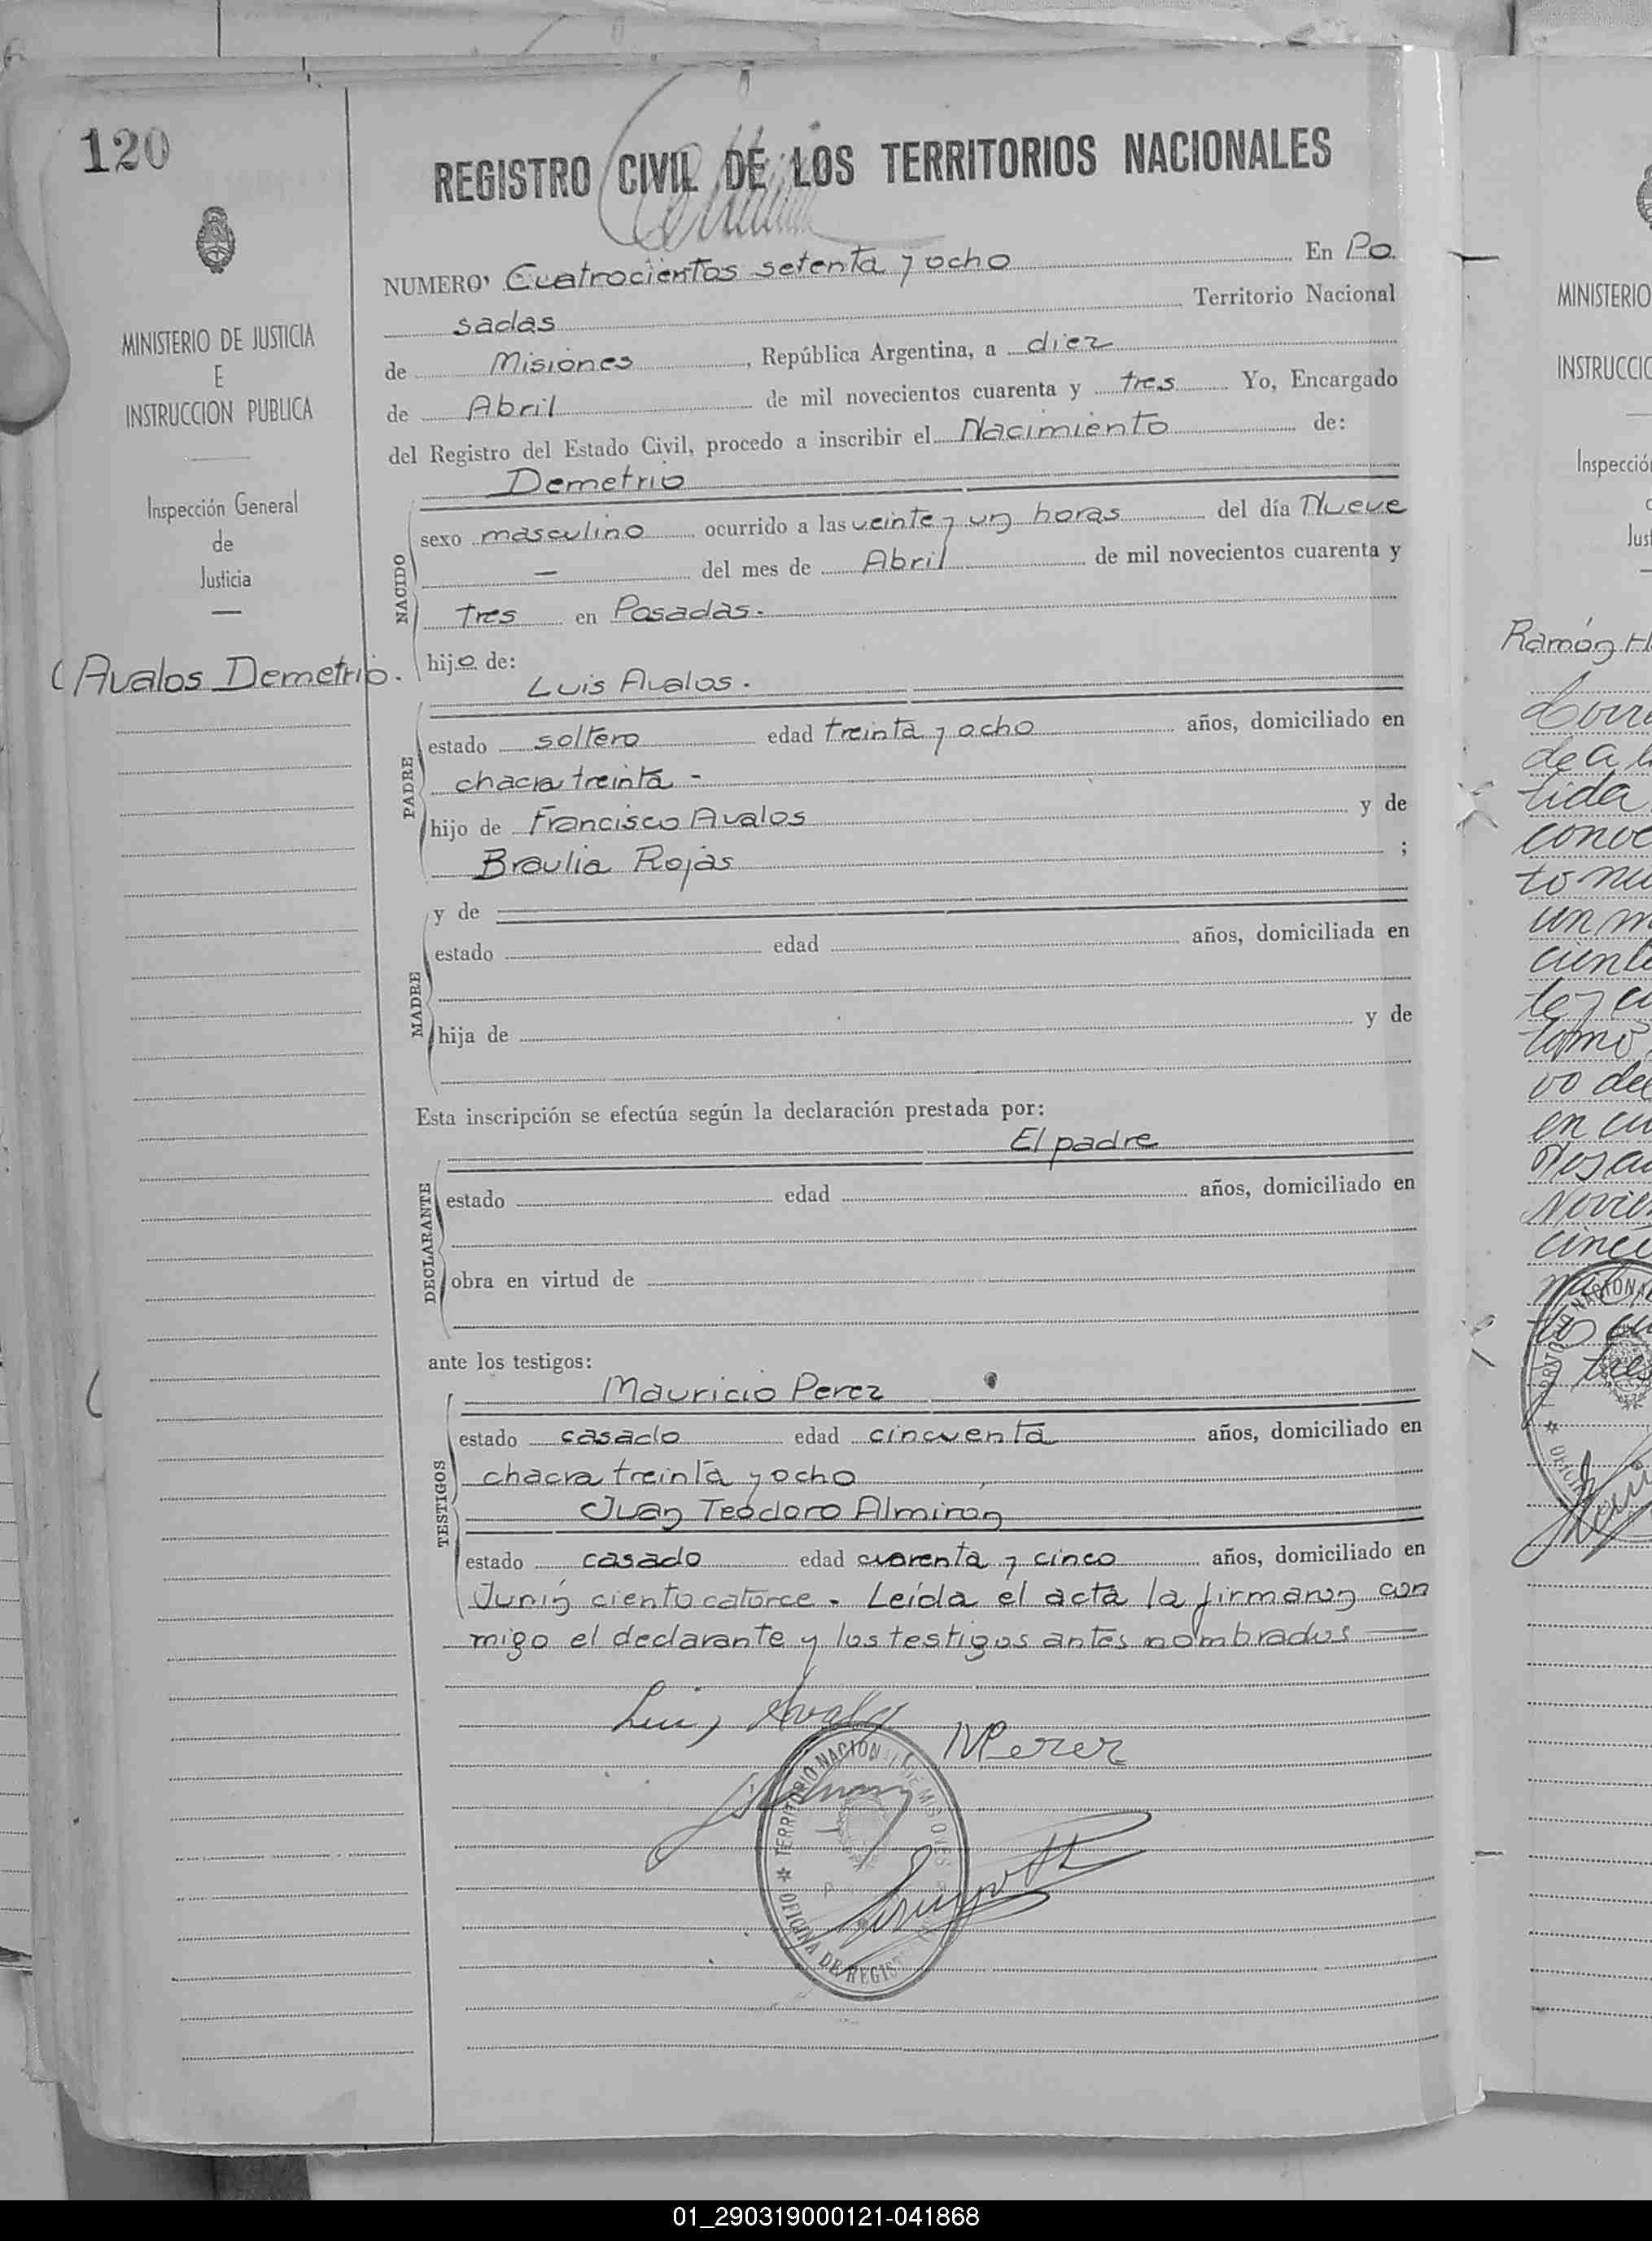 120
REGISTRO CIVIL DE LOS TERRITORIOS NACIONALES
MINISTERIO DE JUSTICIA
E
INSTRUCCION PUBLICA
Inspección General
de
Justicia
(Avalos Demetrio.
NUMERO Cuatrocientos setenta y ocho En Po
sadas Territorio Nacional
de Misiones, República Argentina, a diez
de Abril de mil novecientos cuarenta y tres Yo, Encargado
del Registro del Estado Civil, procedo a inscribir el Nacimiento de:
NACIDO
Demetrio
sexo masculino ocurrido a las veinte y un horas del día Nueve
— del mes de Abril de mil novecientos cuarenta y
tres en Posadas.
hijo de:
PADRE
Luis Avalos.
estado soltero edad treinta y ocho años, domiciliado en
chacra treinta -
hijo de Francisco Avalos y de
Braulia Rojas ;
MADRE
y de
estado edad años, domiciliada en
hija de y de
Esta inscripción se efectúa según la declaración prestada por:
DECLARANTE
El padre
estado edad años, domiciliado en
obra en virtud de
ante los testigos:
TESTIGOS
Mauricio Perez
estado casado edad cincuenta años, domiciliado en
chacra treinta y ocho
Juan Teodoro Almiron
estado casado edad cuarenta y cinco años, domiciliado en
Junín ciento catorce. Leída el acta la firmaron con
migo el declarante y los testigos antes nombrados —
Luis Avalos
MPerez
TERRITORIO NACIONAL DE MISIONES
OFICINA DE REGIST
MINISTERIO
INSTRUCCIO
Inspecció
Jus
Ramón H
de a
tida
conoc
to nu
un m
vo del
en cu
01_290319000121-041868